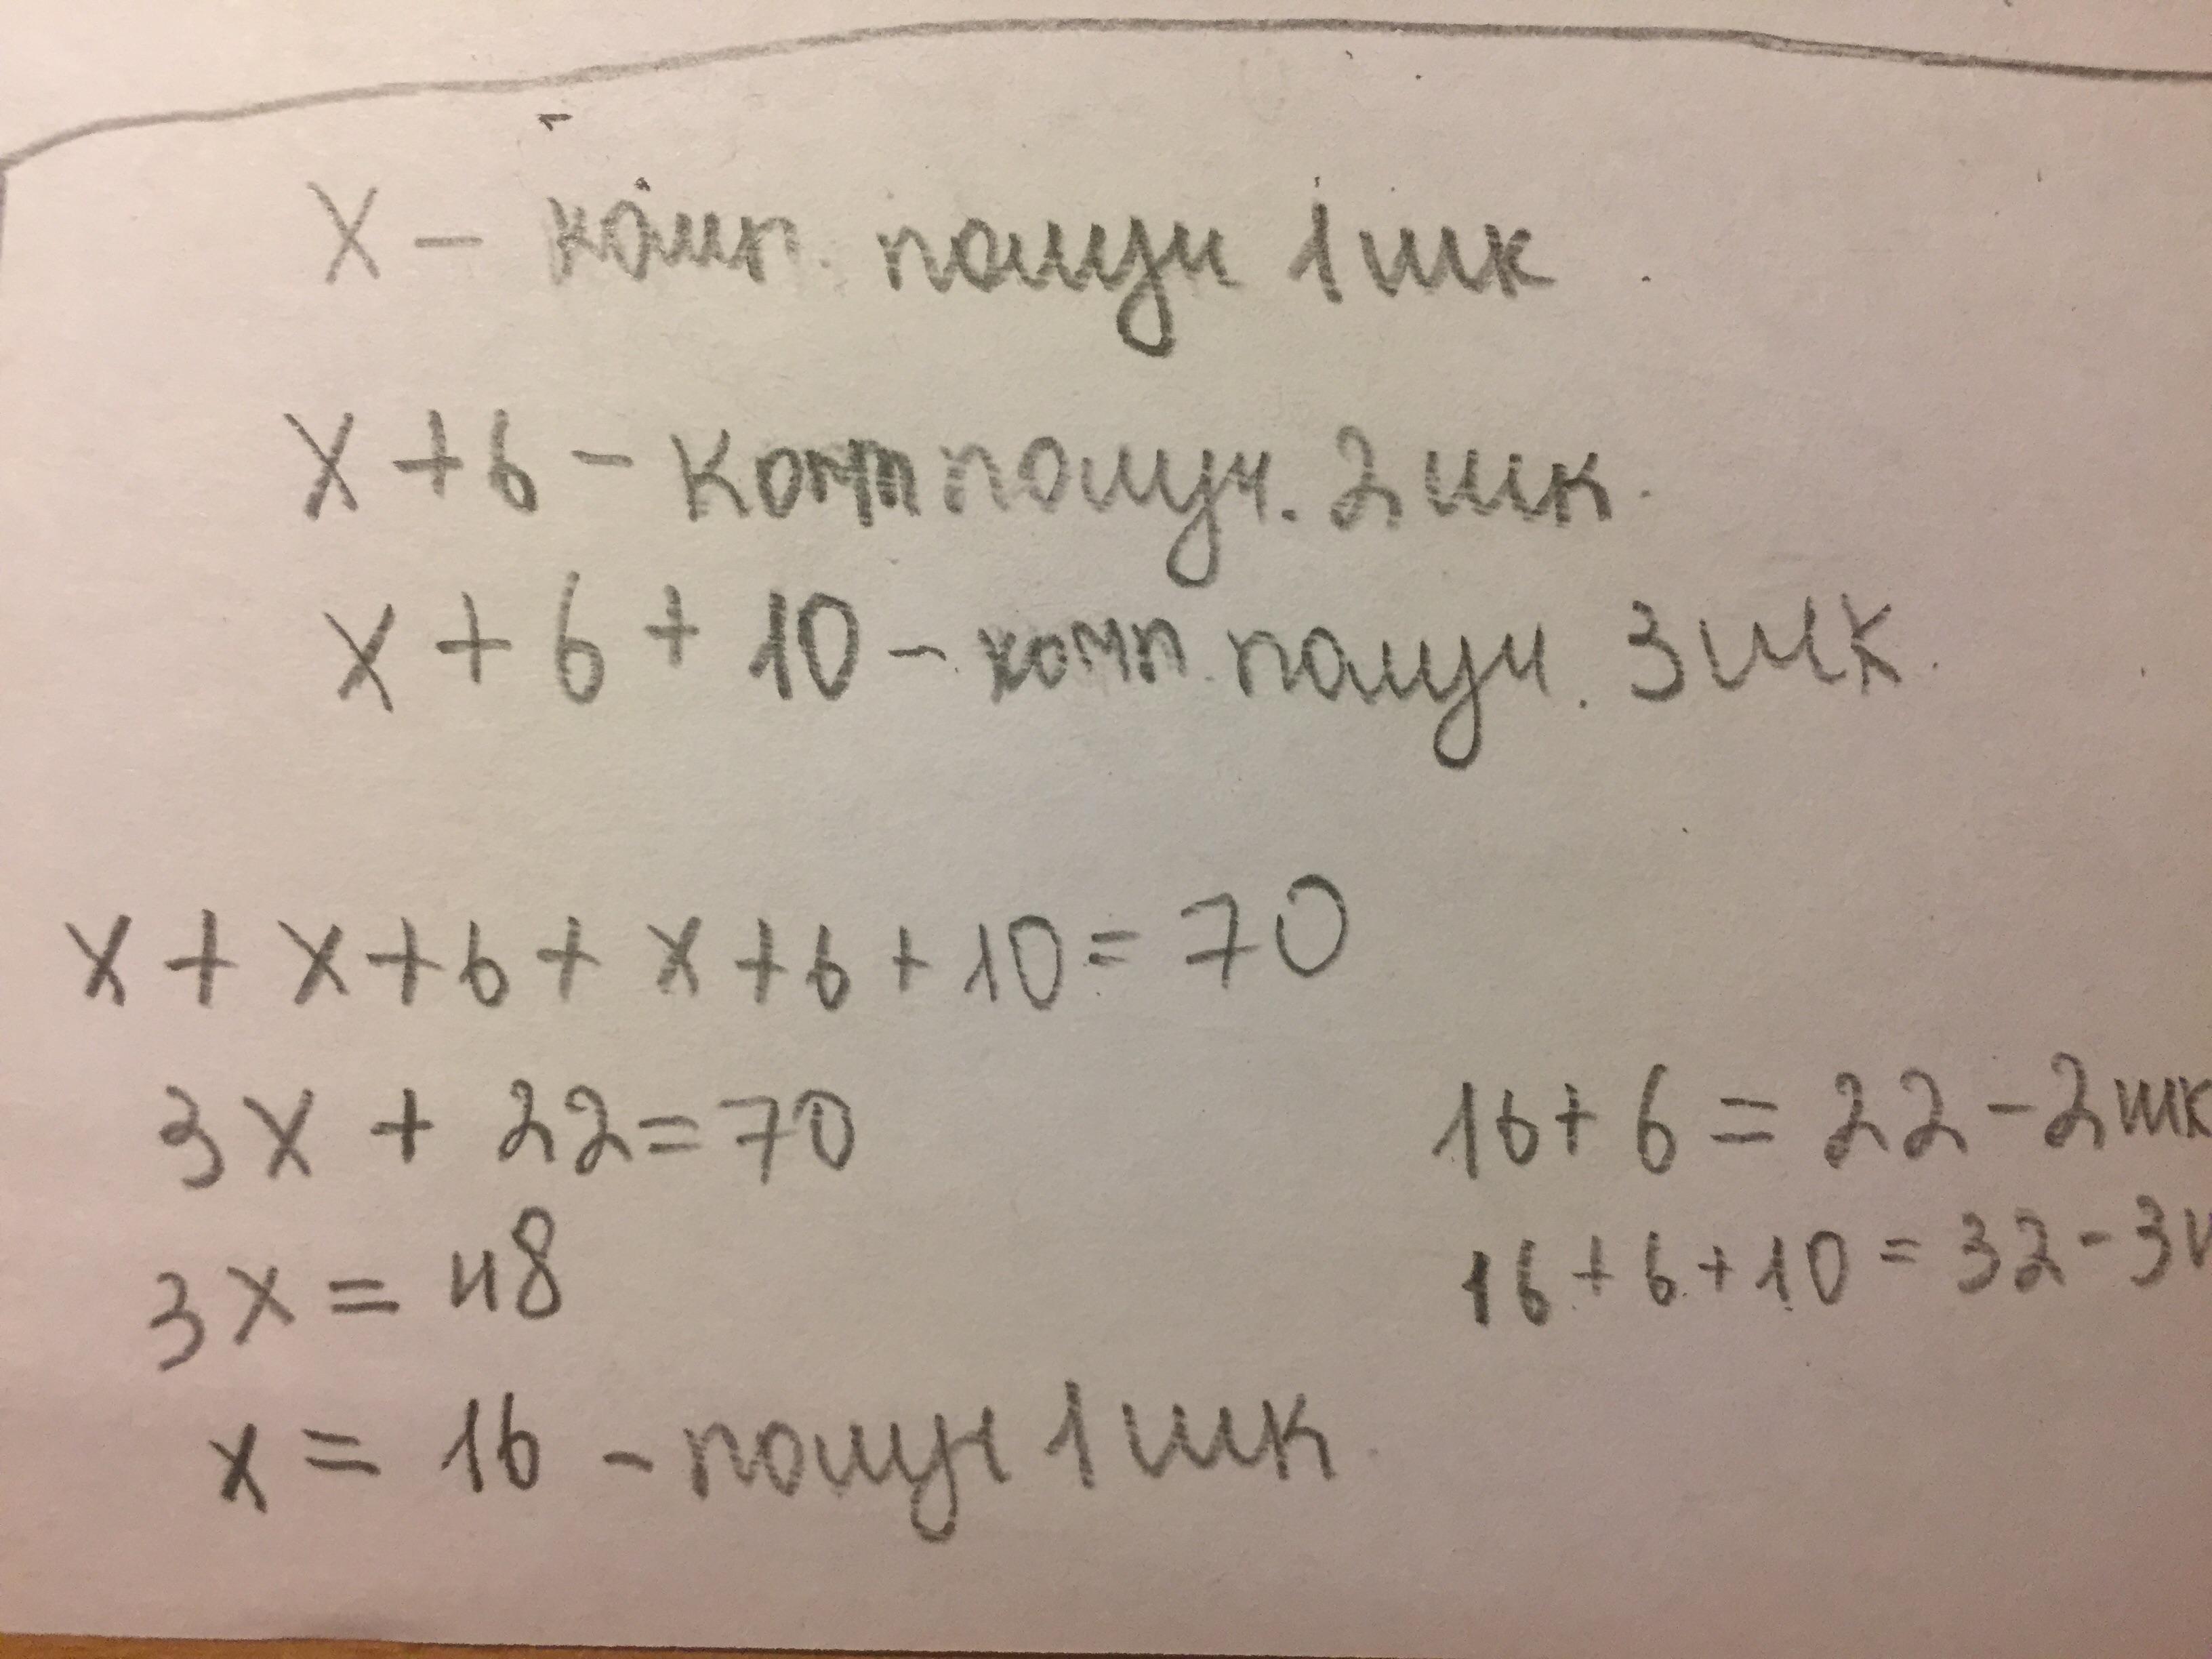 x - комп. получ 1 шк
x + 6 - комп получ. 2 шк.
x + 6 + 10 - комп. получ. 3 шк.
x + x + 6 + x + 6 + 10 = 70
3x + 22 = 70
16 + 6 = 22 - 2 шк
3x = 48
16 + 6 + 10 = 32 - 3
x = 16 - получ 1 шк.